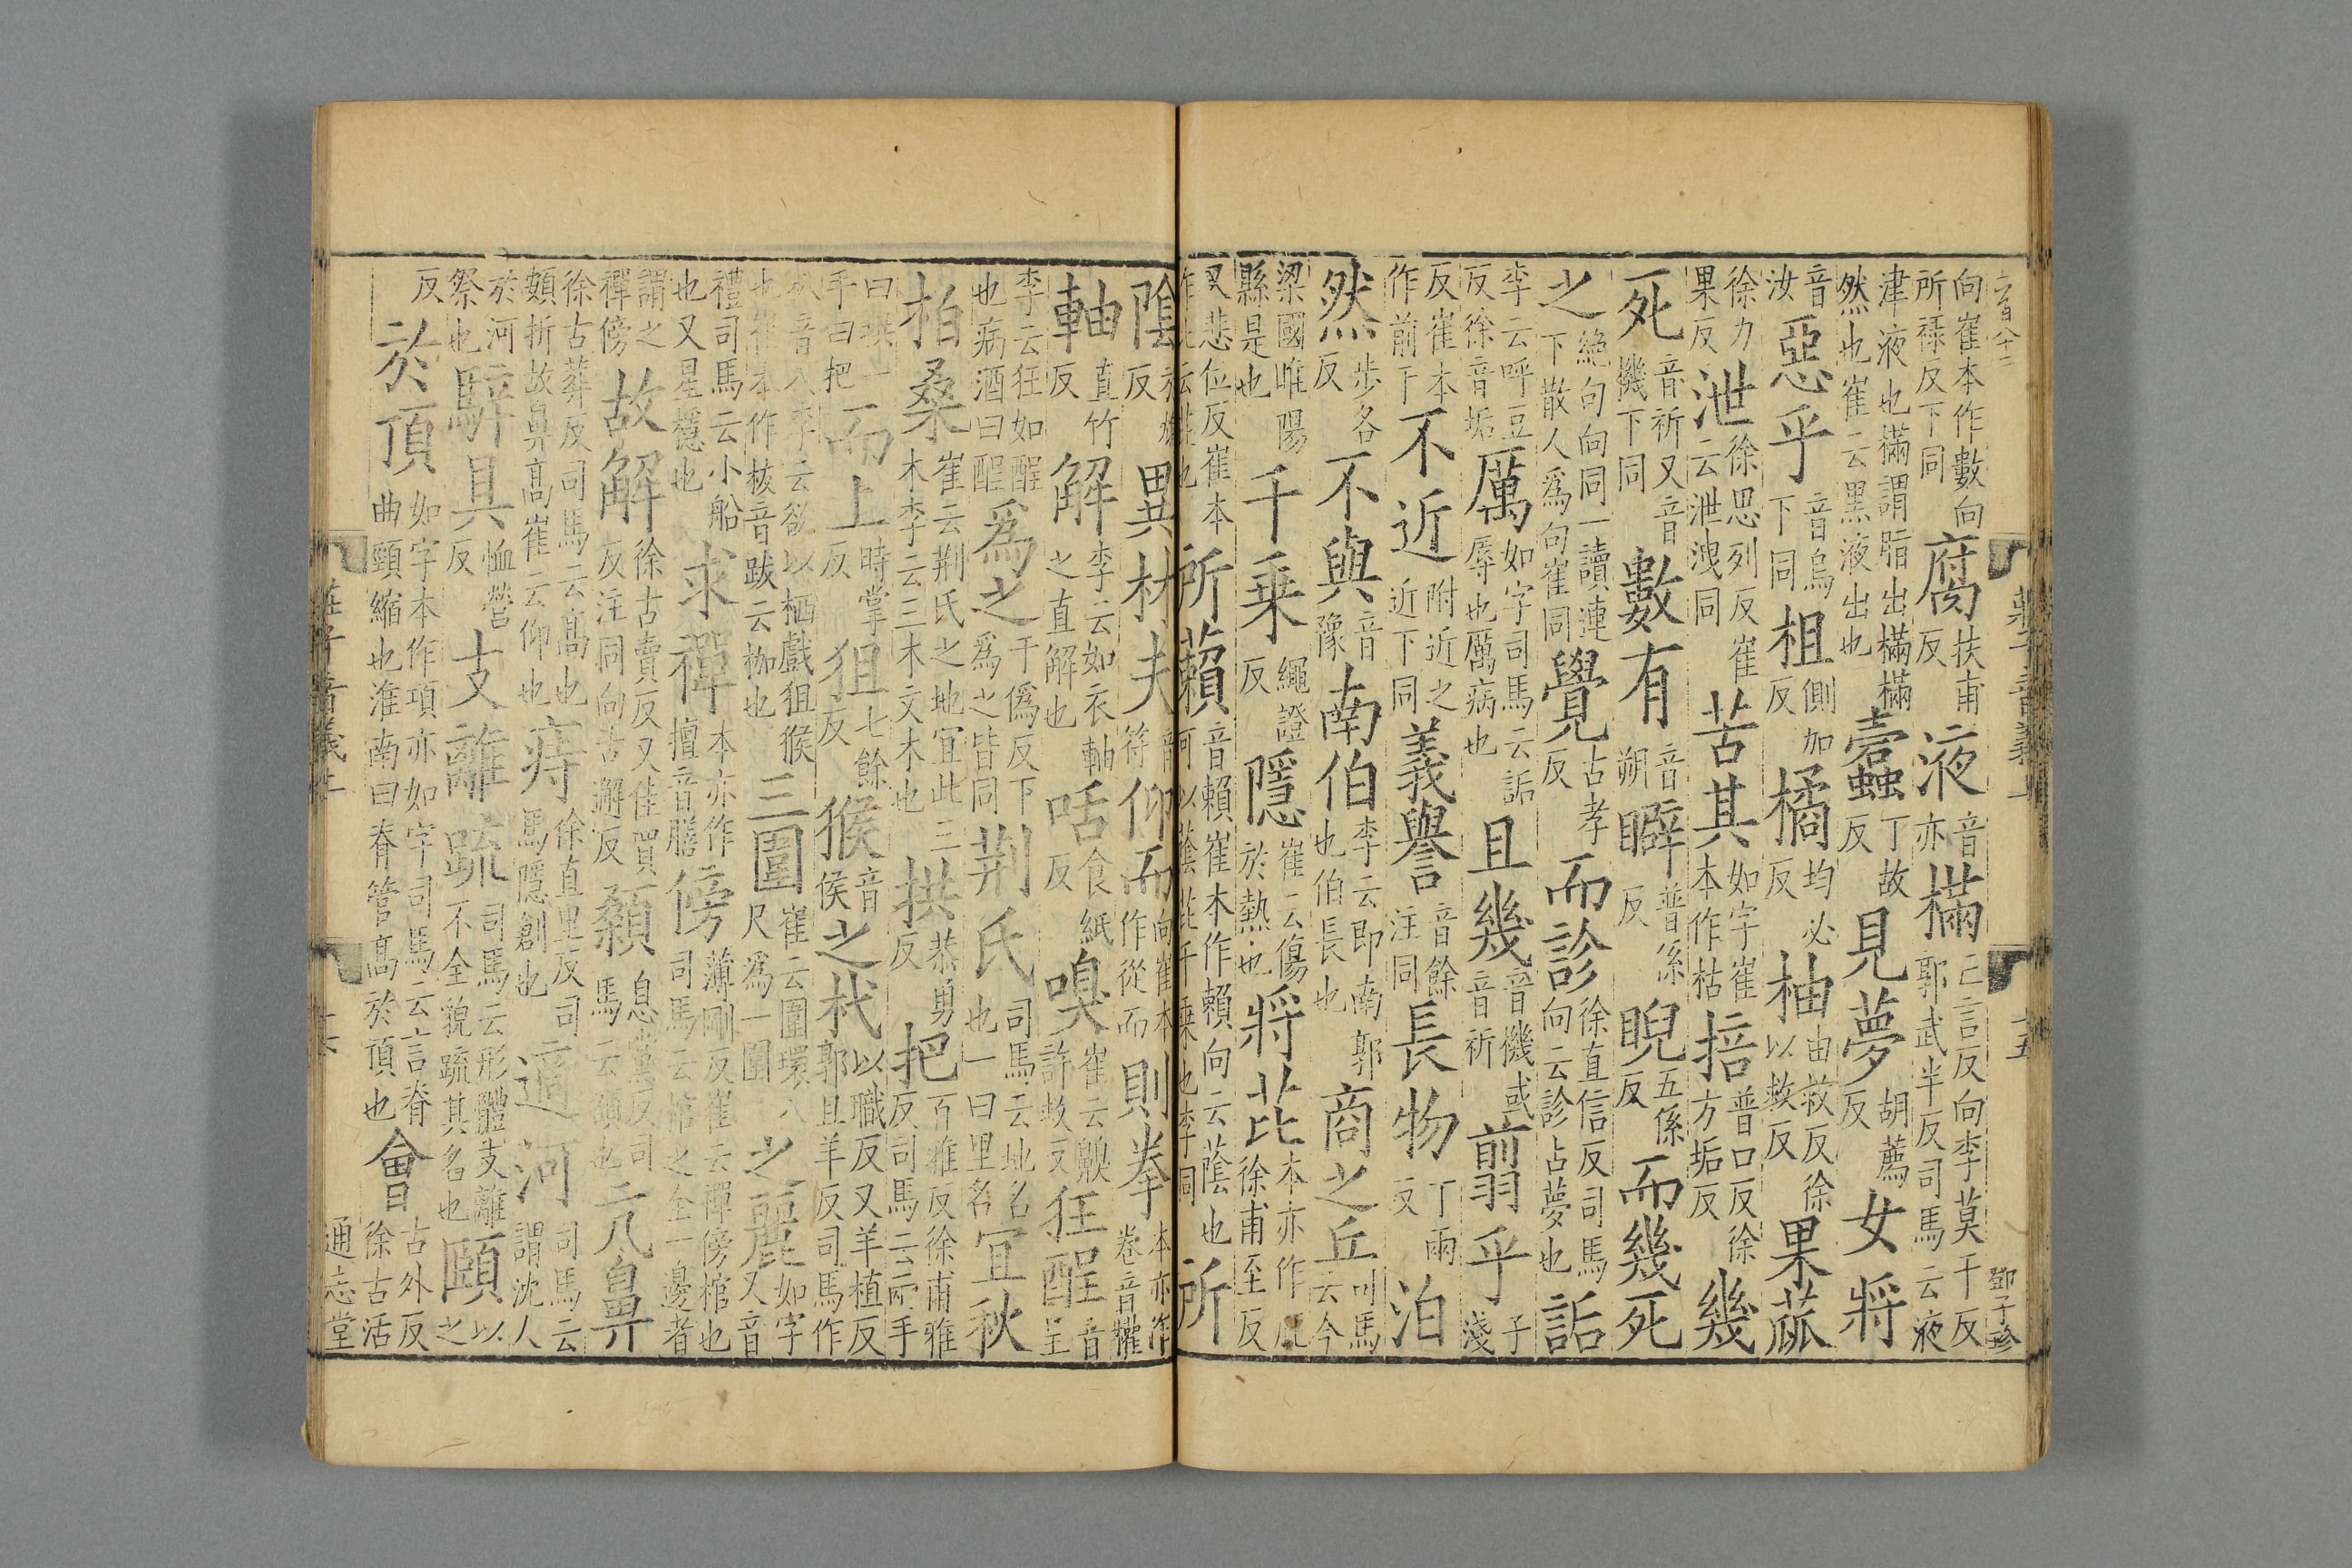 向崔本作數向所祿反下同 腐扶甫反 液音亦 樠亡言反向李莫干反郭武半反司馬云液
津液也樠謂脂出樠樠然也崔云黑液出也 蠹丁故反 見夢胡薦反 女將
音汝 惡乎音烏下同 柤側加反 橘均必反 柚由救反徐以救反 果蓏
徐力果反 泄徐思列反崔云泄洩同 苦其如字崔本作枯 掊普口反徐方垢反 幾
死音祈又音機下同 數有音朔 睥普係反 睨五係反 而幾死
之絶句向同一讀連下散人爲句崔同 覺古孝反 而診徐直信反司馬向云診占夢也 詬
李云呼豆反徐音垢 厲如字司馬云詬辱也厲病也 且幾音機或音祈 翦乎子淺
反崔本作前于 不近附近之近下同 義譽音餘注同 長物丁兩反 泊
然步各反 不與音豫 南伯李云即南郭也伯長也 商之丘司馬云今
梁國睢陽縣是也 千乘繩證反 隱崔云傷於熱也 將芘本亦作庇徐甫至反
又悲位反崔本作 所藾音賴崔本作賴向云蔭也可以蔭芘千乘也李同 所
蔭反 異材夫音符 仰而向崔本作從而 則拳本亦作卷音權
軸直竹反 解李云如衣軸之直解也 咶食紙反 嗅崔云齅許救反 狂酲音呈
李云狂如酲也病酒曰酲 爲之于僞反下爲之皆同 荆氏司馬云地名也一曰里名 宜秋
柏桑崔云荆氏之地宜此三木李云三木文木也 拱恭勇反 把百雅反徐甫雅反司馬云兩手
曰拱一手曰把 而上時掌反 狙七餘反 猴音侯 之杙以職反又羊植反郭且羊反司馬作
音八李云欲以栖戲狙猴也崔本作柭音跋云枷也 三圍崔云圍環八尺爲一圍 之麗如字又音
禮司馬云小船也又屋穩也 求禪本亦作擅音膳 傍薄剛反崔云禪傍棺也司馬云棺之全一邊者
謂之禪傍 故解徐古賣反又佳買反注同向古邂反 顙息黨反司馬云額也 亢鼻
徐古葬反司馬云高也頞折故鼻高崔云仰也 痔徐直里反司馬云隱創也 適河司馬云謂沈人
於河祭也 騂具恤營反 支離疏司馬云形體支離不全貌疏其名也 頤以之
反 於頂如字本作項亦如字司馬云言脊曲頸縮也淮南曰脊管高於頂也 會古外反徐古活
莊子音義上
十五
鄧子珍
莊子音義上
通志堂